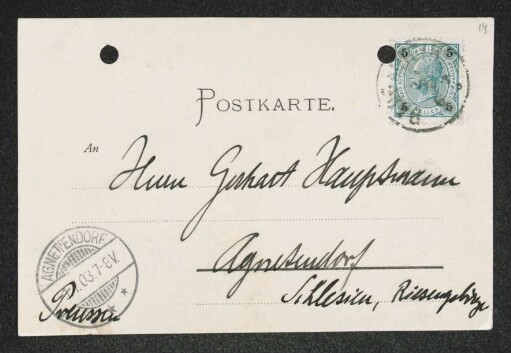 POSTKARTE.
5 5
5 5
An
Herrn Gerhart Hauptmann
Agnetendorf
Schlesien, Riesengebirge
Preussen
AGNETENDORF
03.7-8V.